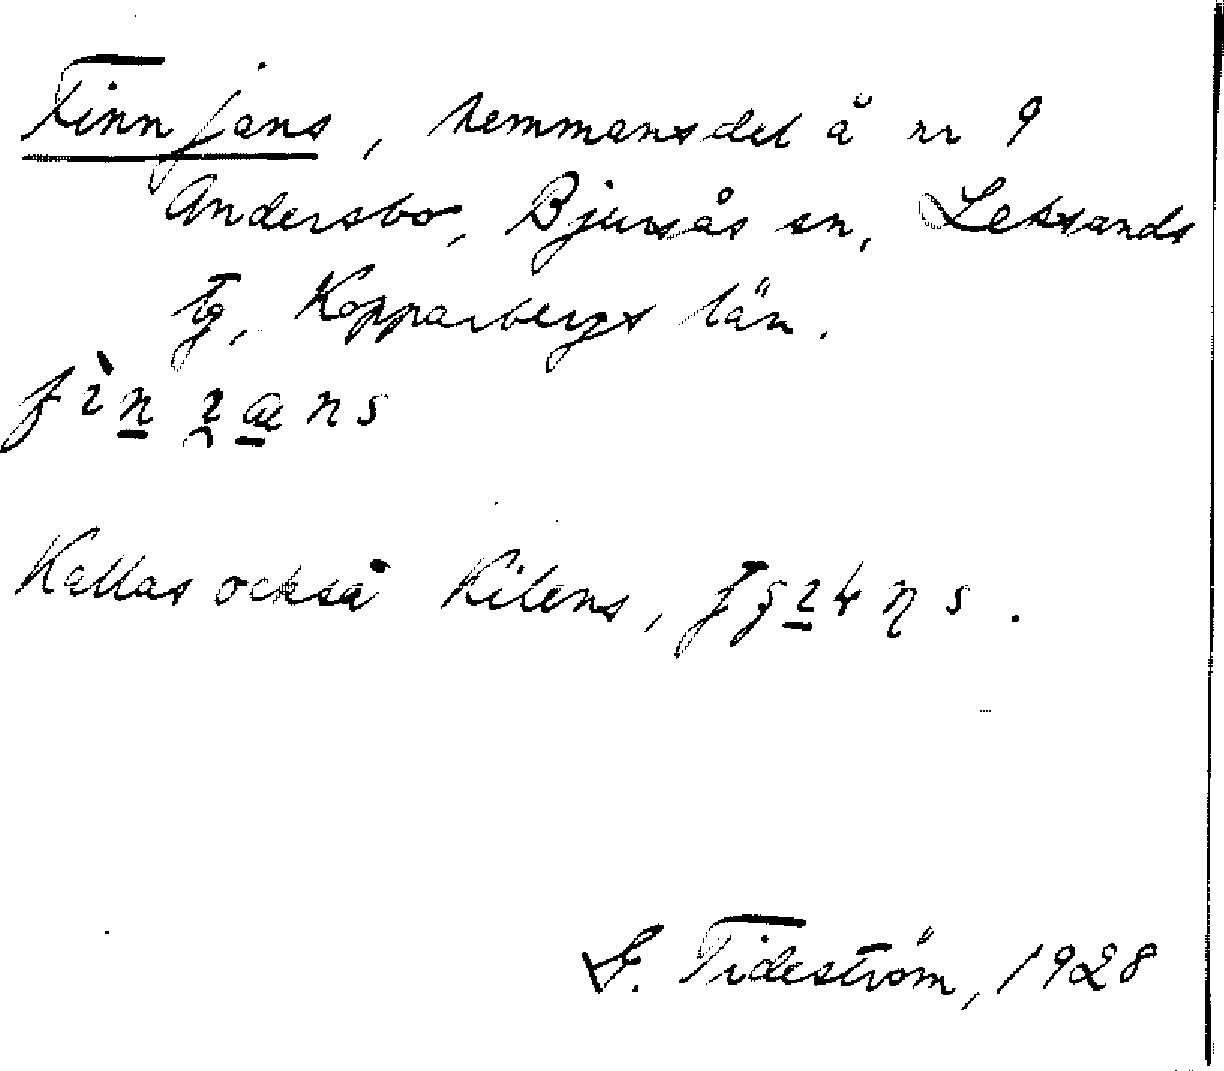 Finnjans, hemmansdel å nr 9
Andersbo, Bjursås sn, Leksands
tg, Kopparbergs län.
Kallas också Kilens,
G. Tideström, 1928